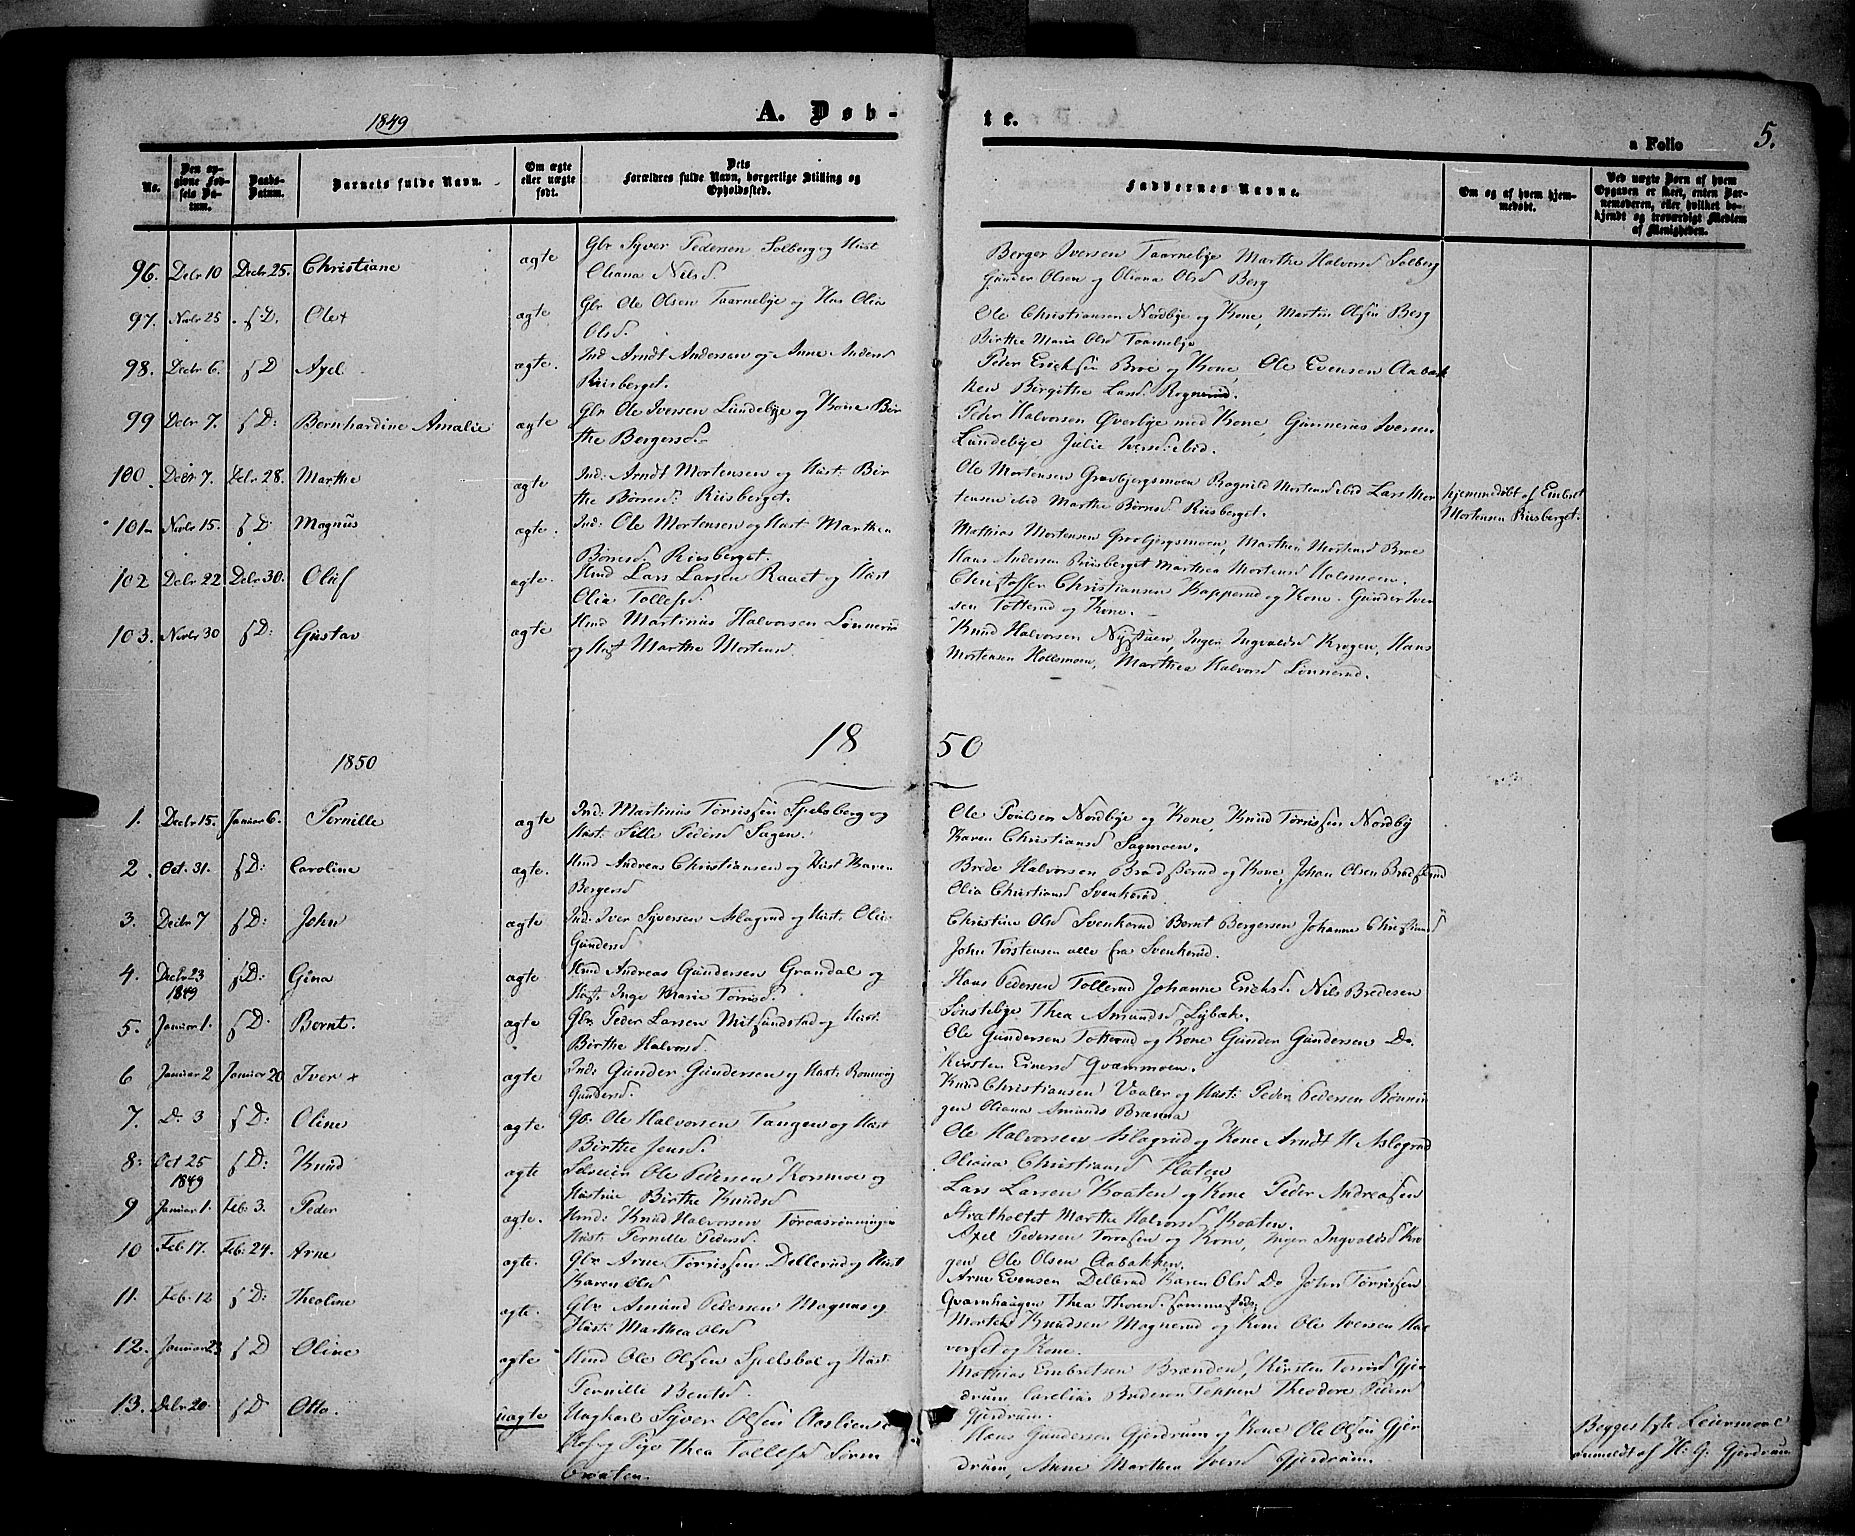 1849
A. Døb-
te.
a Folio
5.
No.
Den op-
givne Fød-
sels Da-
tum.
Daabs-
Datum.
Barnets fulde Navn.
Om ægte
eller uægte
født.
Dets
Forældres fulde Navn, borgerlige Stilling og
Opholdssted.
Faddernes Navne.
Om og af hvem hjem-
medøbt.
Ved uægte Børn af hvem
Opgaven er skeet, enten Bar-
nemoderen, eller hvilket be-
kjendt og troværdigt Medlem
af Menigheden.
96. Decbr 10 Decbr 25. Christiane ægte Gbr Syver Pedersen Solberg og Hust
Oliana Nilsd
Berger Iversen Taarnebye Marthe Halvorsd Solberg
Gunder Olsen og Oliana Olsd Berg
97. Novbr 25 s. D. Ole + ægte Gbr Ole Olsen Taarnebye og Hus Olia
Olsd.
Ole Christiansen Nordbye og Kone, Martin Olsen Berg
Birthe Maria Olsd Taarnebye
98. Decbr 6. s D Axel ægte. Ind Arndt Andersen og Anne Anders
Riisberget.
Peder Ericksen Broe og Kone, Ole Evensen Aabak
ken Birgithe Larsd. Rognerud.
99 Debr 7. s D: Bernhardine Amalie ægte Gbr Ole Iversen Lundebye og Kone Bir
the Bergersd.
Peder Halvorsen Øverbye med Kone, Gunnerius Iversen
Lundebye Julie Iversd: ibid.
100. Decbr 7. Debr 28. Marthe ægte Ind: Arndt Mortensen og Hust: Bir
the Børresd: Riisberget.
Ole Mortensen Gravbjergsmoen Rognild Mortensd ibid Lars Mor
tensen ibid Marthe Børresd Riisberget.
hjemmedøbt af Embret
Mortensen Riisberget.
101. Novbr 15. s D: Magnus ægte. Ind: Ole Mortensen og Hust Marthea
Børresd Riisberget.
Mathias Mortensen Gravbjergsmoen, Marthea Mortensd Broe
Hans Andersen Riisberget Marthea Mortensd Holsmoen.
102 Debr 22 Debr 30. Oluf ægte. Hmd Lars Larsen Rauet og Hust
Olia Tollefsd.
Christoffer Christiansen Kapperud og Kone. Gunder Iver
sen Totterud og Kone.
103. Novbr 30 s D: Gustav ægte Hmd Martinus Halvorsen Lønnerud
og Hust Marthe Mortensd.
Knud Halvorsen Nystuen, Inger Ingvaldsd Krogen, Hans
Mortensen Hollsmoen, Marthea Halvorsd Lønnerud.
18 50
1850
1. Decbr 15. Januar 6. Pernille ægte Ind: Martinus Tørrissen Spelsberg og
Hust: Sille Pedersd Sagen.
Ole Poulsen Nordbye og Kone, Knud Tørrissen Nordby
Karen Christiansd Sagmoen.
2. Oct. 31. s D: Caroline ægte. Hmd Andreas Christiansen og Hust Karen
Bergersd
Brede Halvorsen Bradskerud og Kone, Johan Olsen Bradskerud
Olia Christiansd Svenkerud.
3. Decbr 7 s D: John ægte Ind: Iver Syversen Aslagrud og Hust. Olia
Gundersd
Christian Olsd Svenkerud Bernt Bergersen Johanne Christiansd
John Torstensen alle fra Svenkerud.
4. Decbr 23
1849 s D: Gina ægte Hmd Andreas Gundersen Grandal og
Hust. Inge Marie Tørrisd.
Hans Pedersen Tollerud Johanne Ericksd. Nils Bredesen
Sønstebye Thea Amundsd Lybak.
5. Januar 1. s D: Bernt. ægte Gbr. Peder Larsen Mitsundstad og Hust.
Birthe Halvorsd.
Ole Gundersen Totterud og Kone Gunder Gundersen Do.
Kirsten Einersd Qvammoen.
6 Januar 2 Januar 20 Iver + ægte Ind: Gunder Gundersen og Hust: Romnog
Gundersd.
Knud Christiansen Vaaler og Hust: Peder Pedersen Rønnin
gen Oliana Amunds Brænna
7. D: 3 s D: Oline ægte Gbr. Ole Halvorsen Tangen og Hust
Birthe Jensd.
Ole Halvorsen Aslagrud og Kone Arndt H Aslagrud
Oliana Christiansd Flaten
8. Oct 25
1849 s D: Knud ægte Ole Pedersen Korsmoe og
Hustrue Birthe Knudsd
Lars Larsen Koaten og Kone Peder Andreassen
Stratholtet Marthe Halvorsd Koaten.
9 Januar 1. Feb. 3. Peder ægte. Hmd: Knud Halvorsen Toraasrønningen
Hust: Pernille Pedersd.
Axel Pedersen Toraasen og Kone, Inger Ingvaldsd Kro
gen Ole Olsen Aabakken.
10 Feb. 17. Feb. 24. Arne ægte. Gbr. Arne Tørrissen Dellerud og Hust
Karen Olsd
Arne Evensen Dellerud Karen Olsd Do John Tørrissen
Qvarnhaugen Thea Thoresd. sammesteds
11. Feb. 12 s D: Theoline ægte. Gbr. Amund Pedersen Magnus og
Hust. Marthea Olsd
Morten Knudsen Magnerud og Kone Ole Iversen Hal
vorset og Kone.
12. Januar 23 s D Oline ægte Hmd Ole Olsen Spelsbal og Hust:
Pernille Bentsd.
Mathias Embretsen Brænden, Kirsten Torrisd Gjer
drum Caroline Bredesen Teppen Theodore Pedersd
Gjerdrum.
13. Debr 20 s D Otto. uægte Ungkarl Syver Olsen Aaslien
og Pige Thea Tollefsd
Hans Gundersen Gjerdrum og Kone Ole Olsen Gjer
drum, Anne Marthea Iversd Gjerdrum.
Begges 1ste Leiermaal
anmeldt af H: G: Gjerdrum